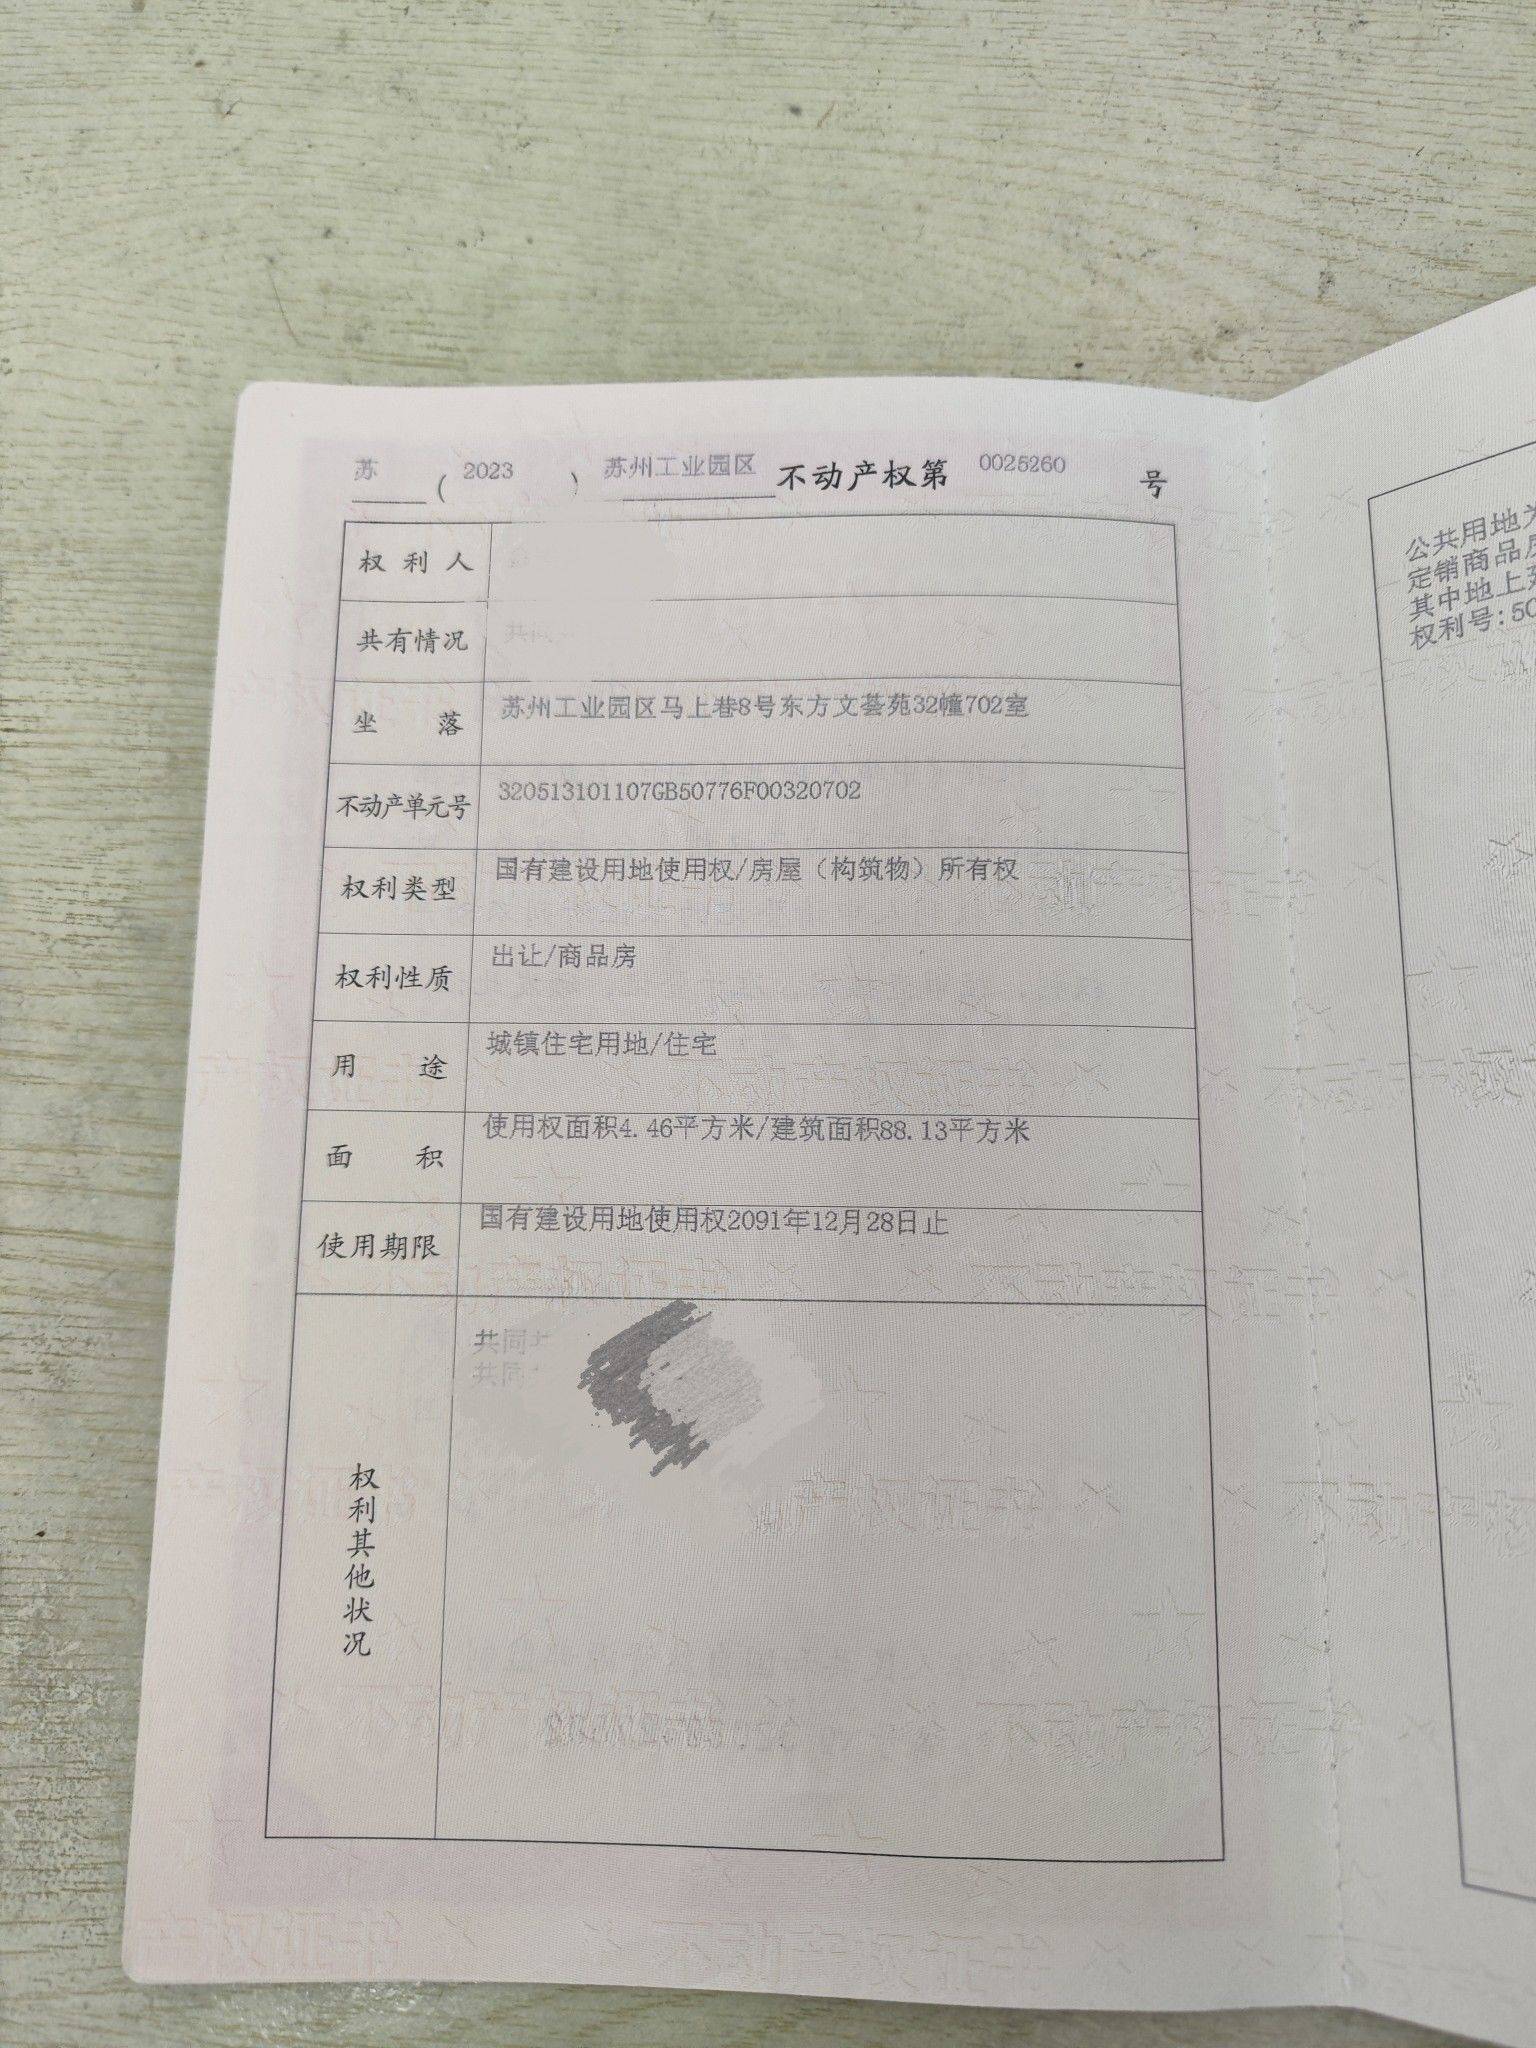 苏 ( 2023 ) 苏州工业园区 不动产权第 0025260 号
权利人
共有情况 共同
坐落 苏州工业园区马上巷8号东方文荟苑32幢702室
不动产单元号 320513101107GB50776F00320702
权利类型 国有建设用地使用权/房屋（构筑物）所有权
权利性质 出让/商品房
用途 城镇住宅用地/住宅
面积 使用权面积4.46平方米/建筑面积88.13平方米
使用期限 国有建设用地使用权2091年12月28日止
权利其他状况
共同
共同
公共用地
定销商品
其中地上
权利号:50